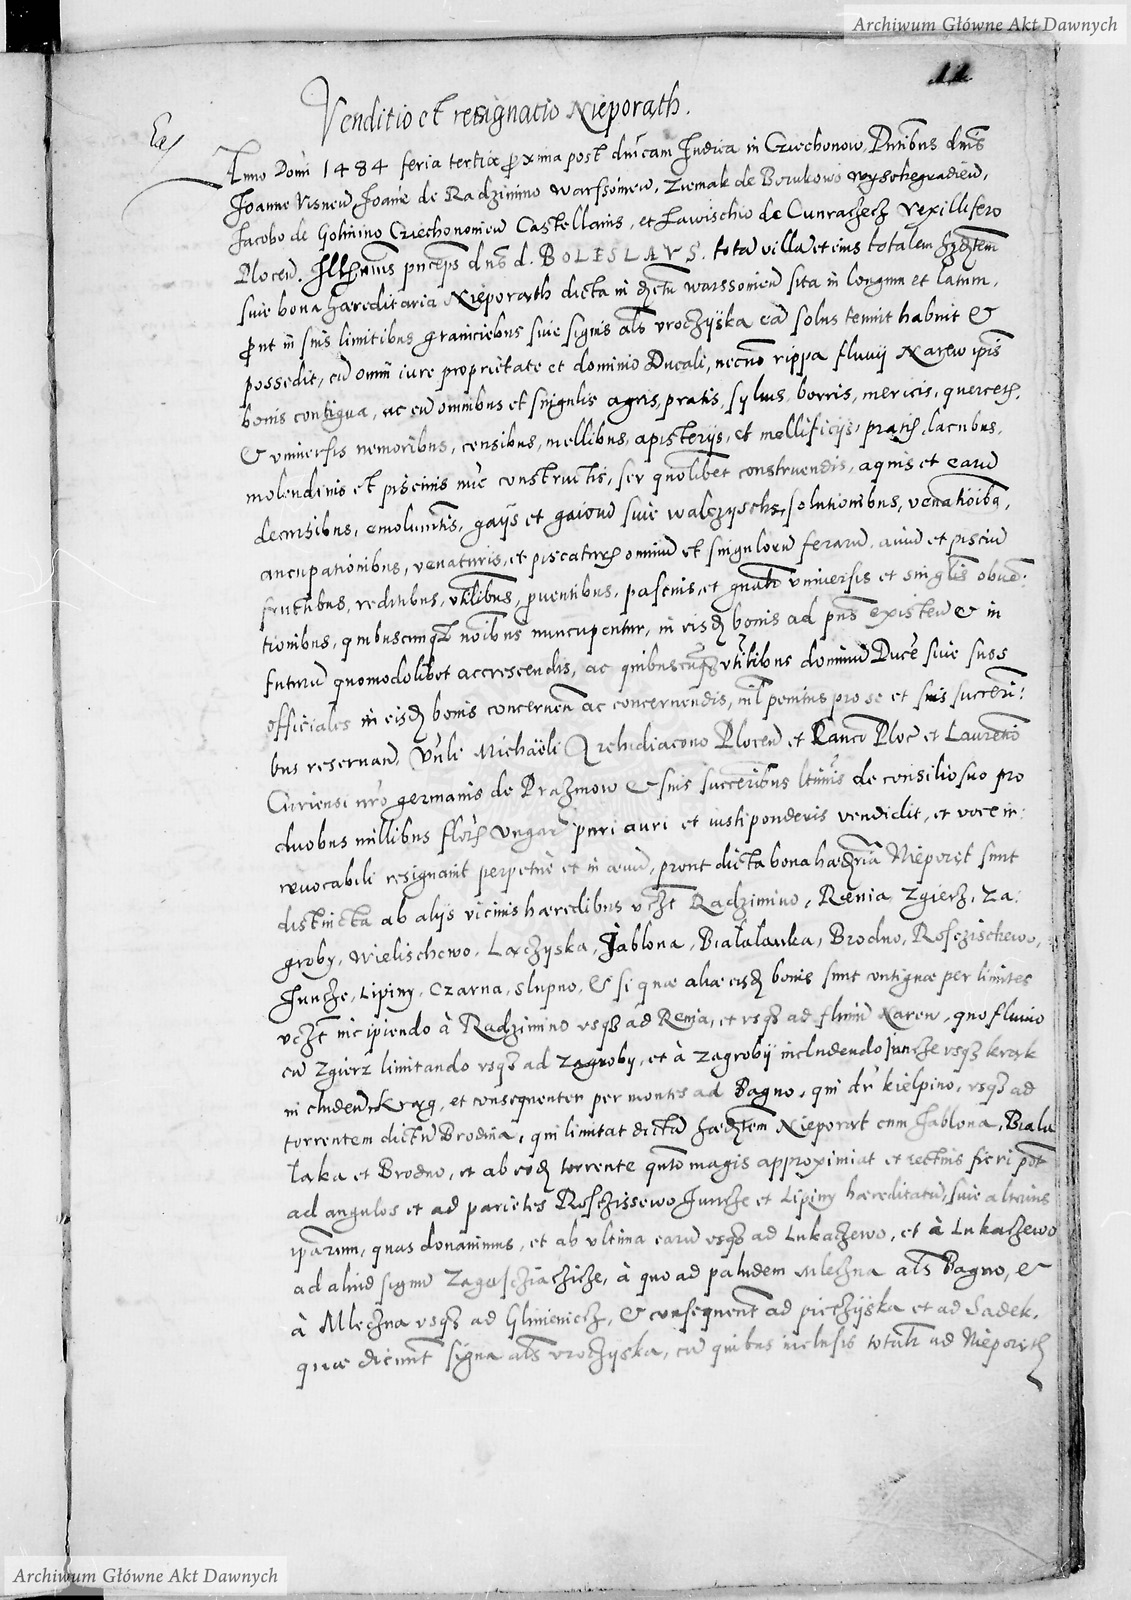 Archiwum Główne Akt Dawnych
11
Venditio et resignatio Nieporath.
Anno Domi 1484 feria tertia proxima post dnicam Judica in Cziechonow, Pntibus dnis
Joanne Visnen, Joane de Radzimino Warssoinen, Ziemak de Borukowo wyschegradien,
Jacobo de Golmino Cziechonomien Castellanis, et Lawischio de Cunrasecz vexillifero
Plocen. Illmus pnceps dns d. BOLESLAVS. tota villa et eius totalem hdtem
siue bona haereditaria Nieporath dicta in dctu warssouien sita in longum et latum,
prout in suis limitibus graniciebus siue signis als vroczyska ea solus tenuit habuit &
possedit, cu omni iure proprietate et dominio Ducali, necno rippa fluuij Narew ipis
bonis contigua, ac cu omnibus et singulis agris, pratis, syluis, borris, mericis, quercetis,
& vniuersis nemoribus, censibus, mellibus, apisterijs, et mellificijs, pratis, lacubus,
molendinis et piscinis nuc constructis, seu quolibet construendis, aquis et earu
decursibus, emolumtis, gaijs et gaioru siue walczysch, solutionibus, venatioibq,
aucupationibus, venaturis, et piscaturis omniu et singuloru feraru, auiu et pisciu
fructibus, reditibus, vtilibus, prouentibus, pascuis, et gnalr vniuersis et singlis obue:
tionibus, quibuscunq noibus nuncupentur, in eisd bonis ad pns existen & in
futuru quomodolibet accrescendis, ac quibuscunq vtilibus dominu Duce siue suos
officiales in eisd bonis concernen ac concernendis, nil penitus pro se et suis succeri:
bus reseruan. Vnli Michaëli Archidiacono Plocen et Canco Ploc et Laurentio
Curiensi nro germanis de Prazmow & suis succeribus ltimis de consilio suo pro
duobus millibus flor Vngar puri auri et iusti ponderis vendidit, et voce ir:
reuocabili resignauit perpetue et in aeuu, prout dicta bona haedria Nieporet sunt
distincta ab alijs vicinis haeredibus vczt Radzimino, Raenia, Zgierz, Za:
groby, Wielischewo, Laczyska, Jablona, Bialalauka, Brodno, Rosczischewo,
Juncze, Lipiny, Czarna, Slupno, & si quae aliae eisd bonis sunt contiguae per limites
vczt incipiendo à Radzimino vsq ad Renia, et vsq ad fluuiu Narew, quo fluuio
cu Zgierz limitando vsq ad Zagroby, et à Zagrobij includendo juncze vsq krak
includen Krag, et consequenter per montes ad Bagno, qui dr kielpino, vsq ad
torrentem dictu Brodnia, qui limitat dicta haedtem Nieporat cum Jablona, Biala
laka et Brodno, et ab eod torrente quto magis approximiat et rectius fieri pot
ad angulos et ad parietes Rosczissewo Juncze et Lipiny haereditatu, siue alterius
iparum, quas donauimus, et ab vltima earu vsq ad Lukaczewo, et à Lukaczewo
ad aliud signu Zagosczia, à quo ad paludem Mleczna als Bagno, &
à Mleczna vsq ad Glinienicz, & consequent ad pieczyska et ad Sadek,
quae dicunt signa als vroczyska, cu quibus inclusis totalr ad Nieporeth
Archiwum Główne Akt Dawnych